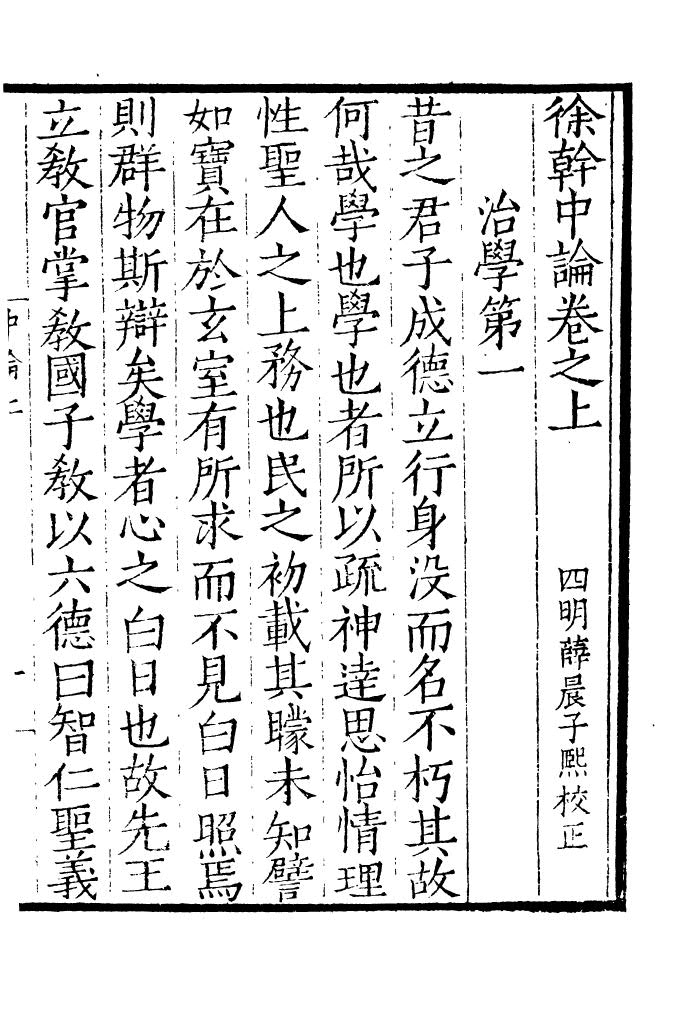 徐幹中論卷之上
四明薛晨子熙校正
治學第一
昔之君子成德立行身没而名不朽其故
何哉學也學也者所以疏神達思怡情理
性聖人之上務也民之初載其矇未知譬
如寶在於玄室有所求而不見白日照焉
則群物斯辯矣學者心之白日也故先王
立教官掌教國子教以六德曰智仁聖義